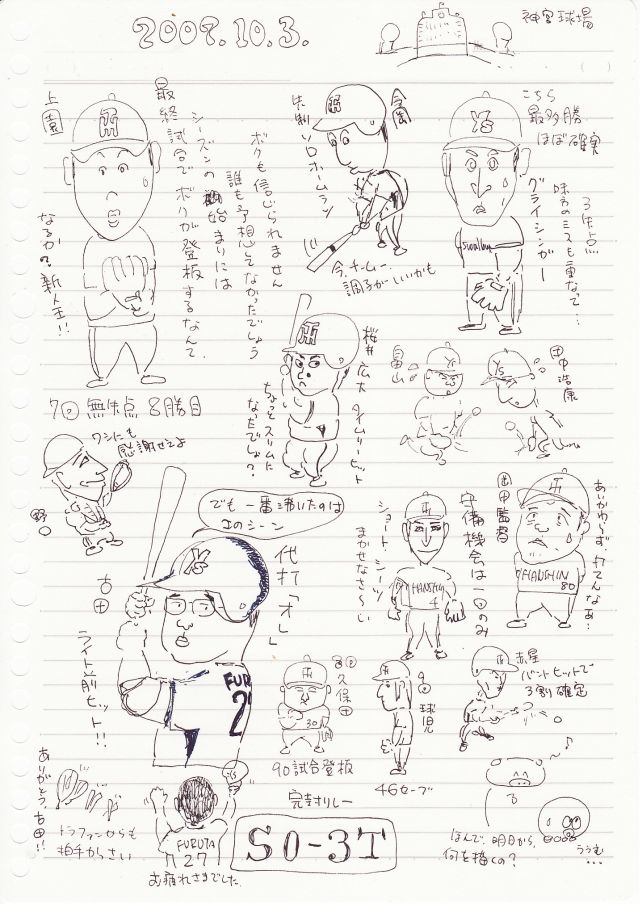 2007.10.3.
神宮球場
上園
なるか?、新人王!!
最終試合でボクが登板するなんて
シーズンの始まりには
誰も予想しなかったでしょう
ボクも信じられません
7回無失点 8勝目
今岡
先制ソロホームラン
今、チーム一、
調子がいいかも
こちら
最多勝
ほぼ確実
3失点
味方のミスも重なって…
グライシンガー
Ys
Swallows
桜井広大 タイムリーヒット
ちょっとスリムに
なったでしょ?
畠山
田中浩康
野口
ワシにも
感謝せえよ
でも一番沸いたのは
このシーン
古田
代打「オレ」
ライト前ヒット!!
FURU
2
ショート・シーツ
まかせなさ〜い
守備機会は一回のみ
HANSHIN
4
岡田監督
あいかわらず、打てんなぁ…
HANSHIN
80
8回 久保田
30
90試合登板
9回 球児
46セーブ
赤星
バントヒットで
3割確定
ありがとう、古田!!
トラファンからも
拍手かっさい
FURUTA
27
お疲れさまでした
完封リレー
S0-3T
ほんで、明日から、
何を描くの?
ううむ…